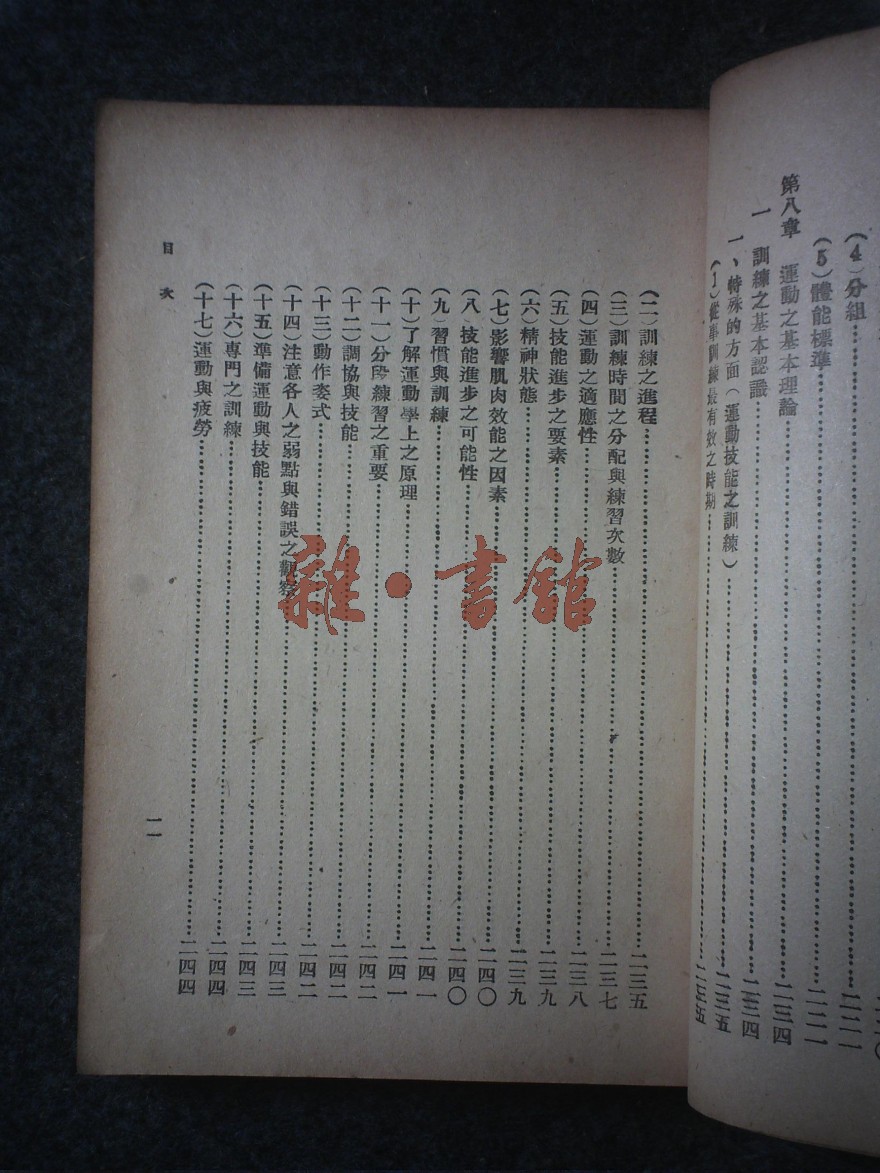 (4)分組………二二一
(5)體能標準………二二二
第八章 運動之基本理論………二三四
一 訓練之基本認識………二三四
二、特殊的方面(運動技能之訓練)………二三五
(1)從事訓練最有效之時期………二三五
(二)訓練之進程………二三五
(三)訓練時間之分配與練習次數………二三七
(四)運動之適應性………二三八
(五)技能進步之要素………二三九
(六)精神狀態………二三九
(七)影響肌肉效能之因素………二四〇
(八)技能進步之可能性………二四〇
(九)習慣與訓練………二四一
(十)了解運動學上之原理………二四一
(十一)分段練習之重要………二四二
(十二)調協與技能………二四二
(十三)動作姿式………二四二
(十四)注意各人之弱點與錯誤之觀察………二四三
(十五)準備運動與技能………二四三
(十六)專門之訓練………二四四
(十七)運動與疲勞………二四四
目次
一一
雜·書館